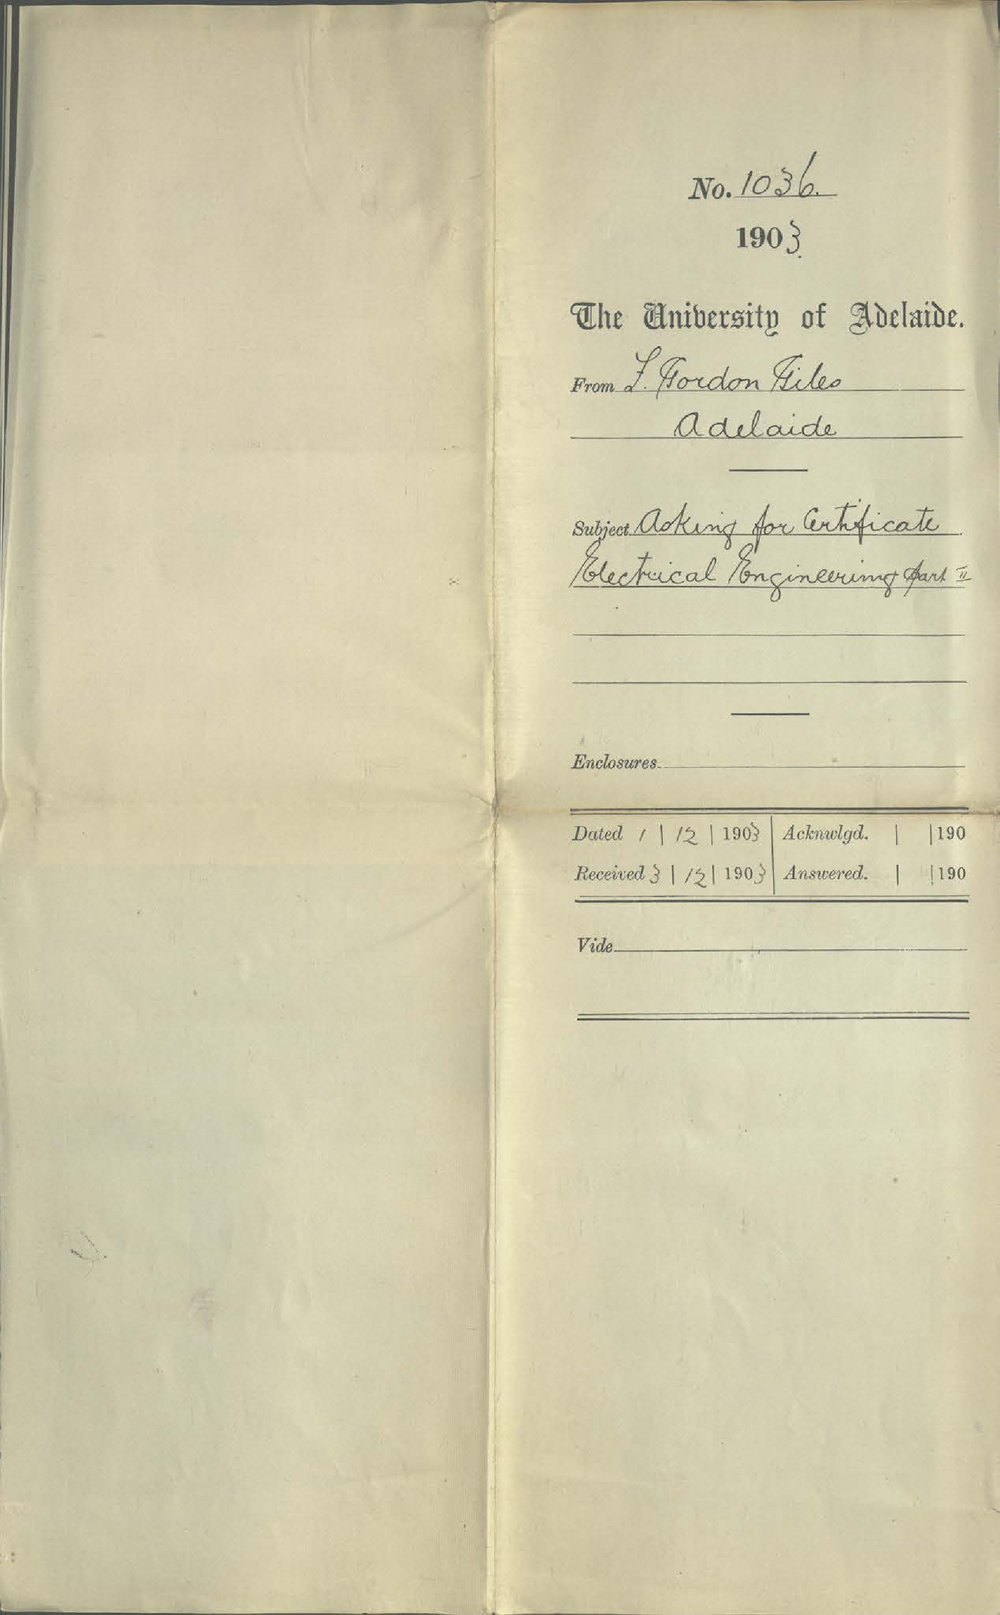 No. 1036.
1903.
The University of Adelaide.
From F. Gordon Giles
Adelaide
Subject Asking for Certificate
Electrical Engineering Part II
Enclosures
Dated 1 | 12 | 1903 | Acknwlgd. | | 190
Received 3 | 12 | 1903 | Answered. | | 190
Vide